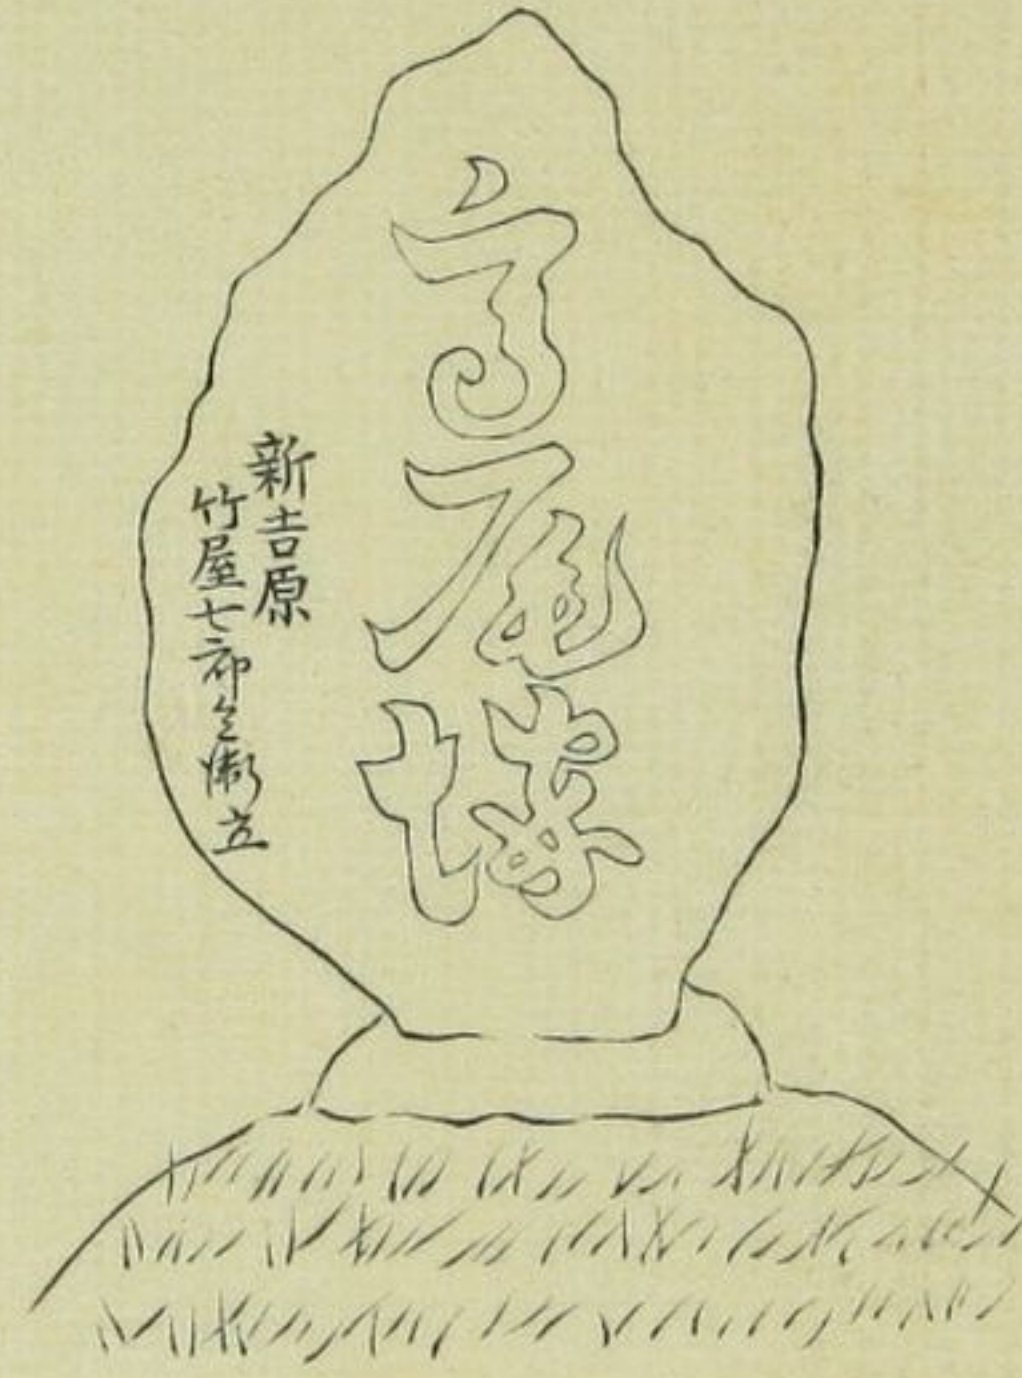 高尾塚
新吉原
竹屋七郎兵衛立